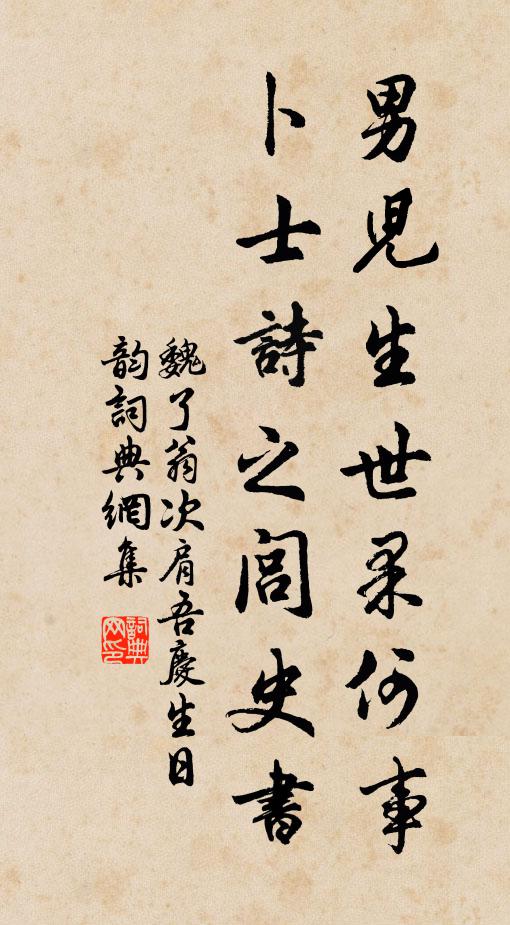 男兒生世果何事
卜士詩之閭史書
魏了翁次肩吾慶生日
韵詞典網集
詞典網印